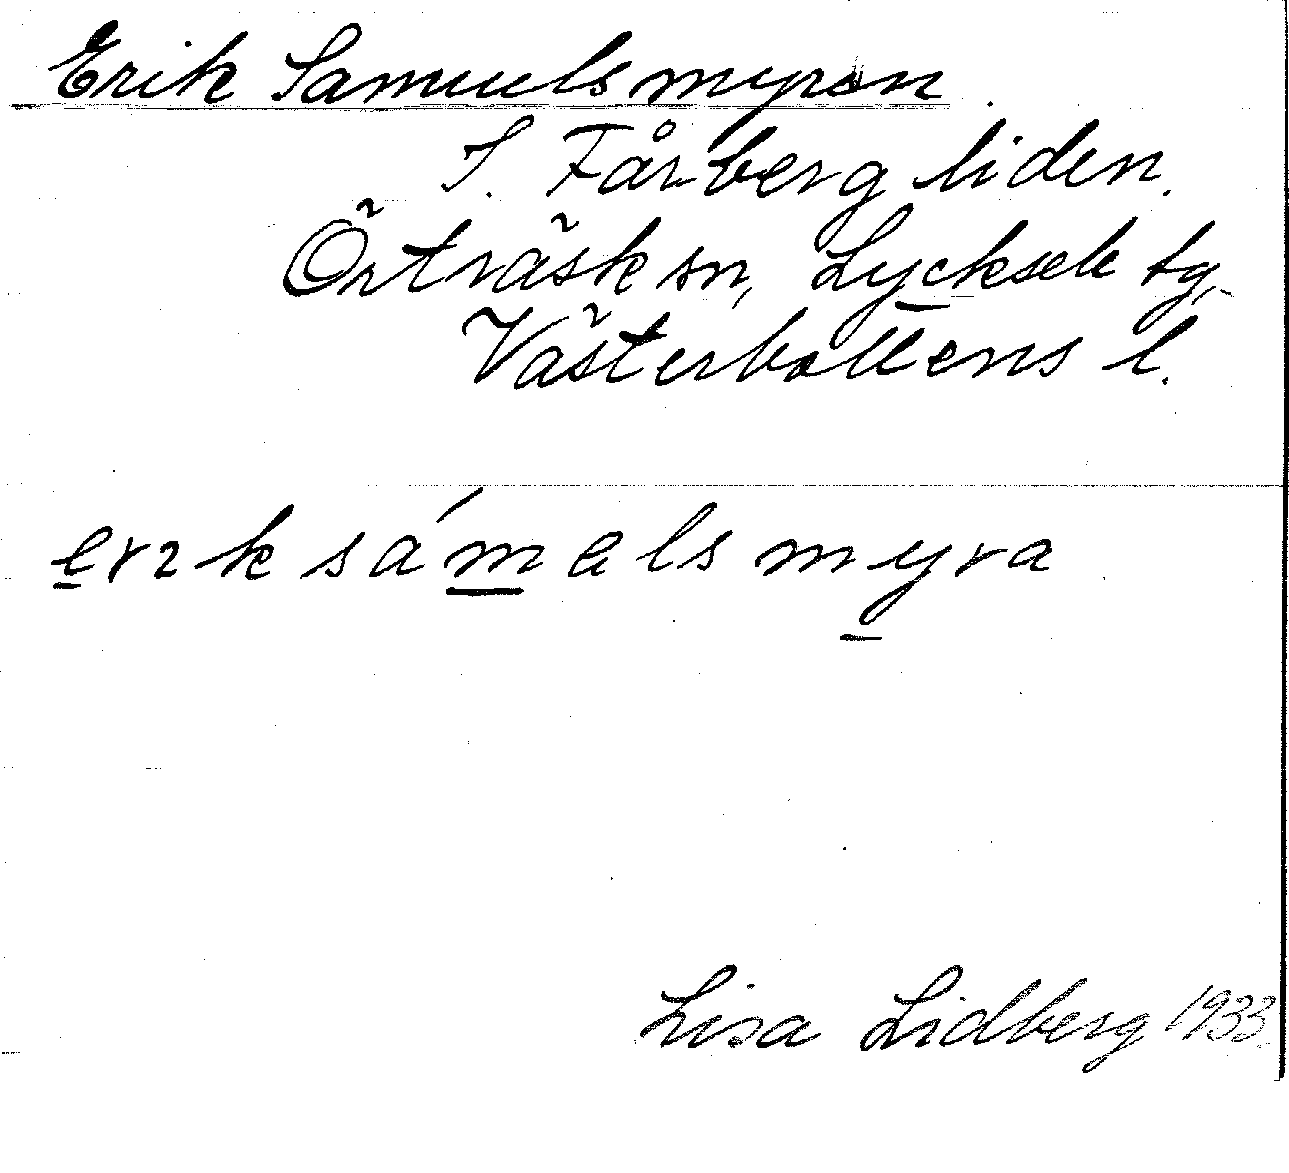 Erik Samuelsmyran
S. Fårbergliden.
Örträsk sn, Lycksele tg,
Västerbottens l.
erık sámelsmyra
Lisa Lidberg 1933.